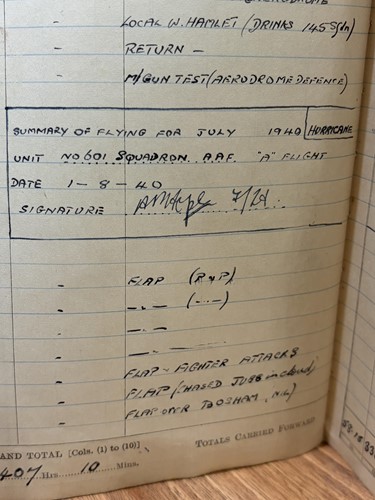 AERODROME
- LOCAL W. HAMLET (DRINKS 145 Sqdn)
- RETURN -
- M/GUN TEST (AERODROME DEFENCE)
SUMMARY OF FLYING FOR JULY 1940 HURRICANE
UNIT NO 601 SQUADRON A.A.F. "A" FLIGHT
DATE 1-8-40
SIGNATURE F/Lt.
- FLAP (R & P)
- -"- (-"-)
- -"-
- -"-
- FLAP - FIGHTER ATTACKS
- FLAP (CHASED JU88 in cloud)
- FLAP OVER BOSHAM, NIL)
AND TOTAL [Cols. (1) to (10)]
407 Hrs 10 Mins.
TOTALS CARRIED FORWARD